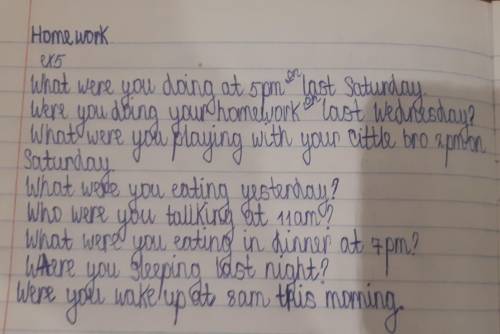 Homework
ex5
What were you doing at 5pm on last Saturday.
Were you doing your homework on last Wednesday?
What were you playing with your little bro 2pm on
Saturday
What were you eating yesterday?
Who were you tallking at 11am?
What were you eating in dinner at 7pm?
Were you sleeping last night?
Were you wake up at 8am this morning.